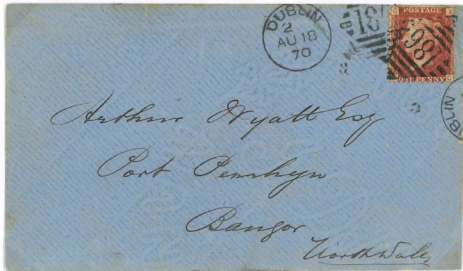 DUBLIN
2
AU 18
70
186
98
POSTAGE
PENNY
BLIN
Arthur Wyatt Esq
Port Penrhyn
Bangor
North Wales